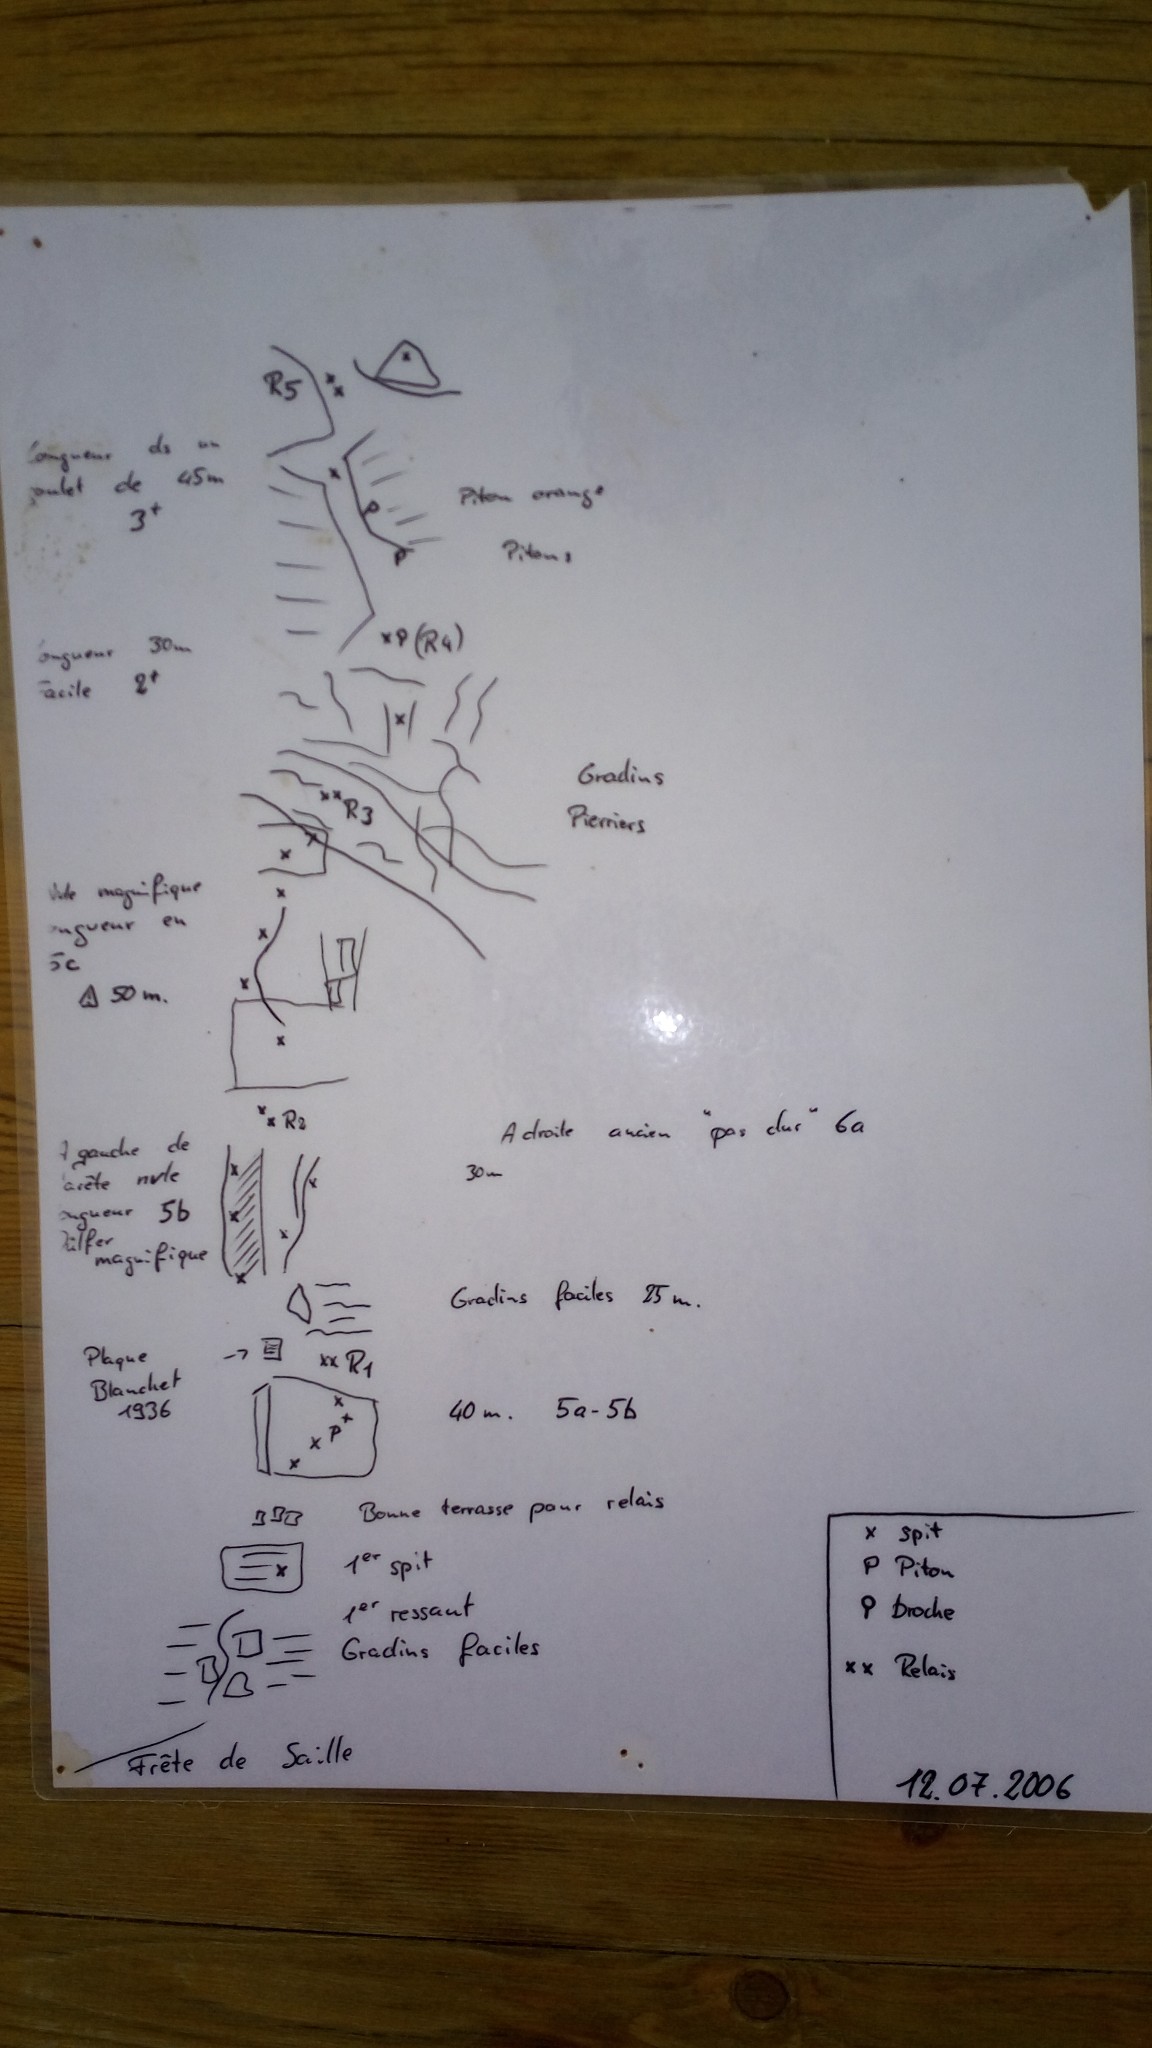 R5
ds un
de 45m
3+
Piton orange
Pitons
P
P (R4)
30m
Facile 2+
Gradins
Pierriers
R3
magnifique
en
5c
50 m.
R2
A droite ancien "pas dur" 6a
30m
A gauche de
nvle
5b
magnifique
Gradins faciles 25 m.
Plaque
Blanchet
1936
R1
P
40 m. 5a-5b
Bonne terrasse pour relais
1er spit
1er ressaut
Gradins faciles
Frête de Saille
x spit
P Piton
broche
xx Relais
12.07.2006